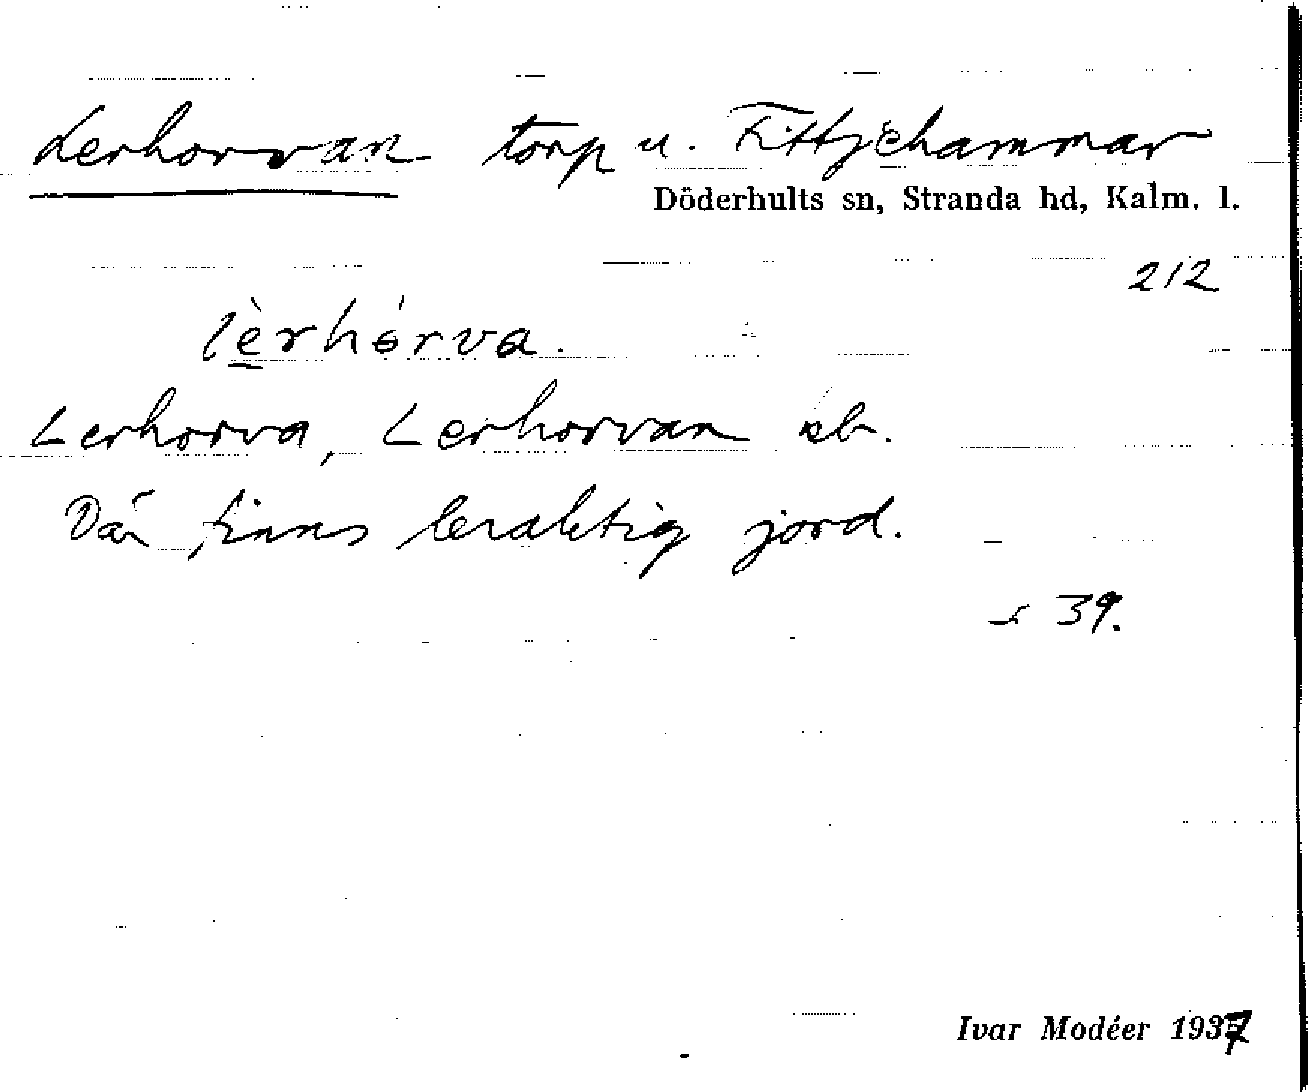 Lerhorvan torp u. Fittjehammar
Döderhults sn, Stranda hd, Kalm. l.
212
lèrhórva.
Lerhorva, Lerhorvan kb.
Där finns leraktig jord.
s 39.
Ivar Modéer 1937